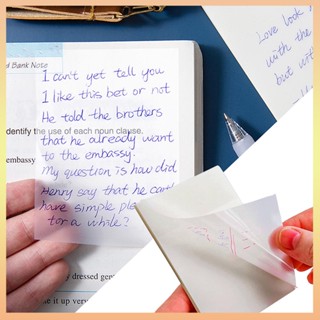 d Bank Note
I can't yet tell you
I like this bet or not
He told the brothers
that he already want
to the embassy.
My question is how did
Henry say that he can
have simple ple
for a while?
dentify the use of each noun clause.
embassy
y dressed gen
e it up very
Love look
with the
but wit